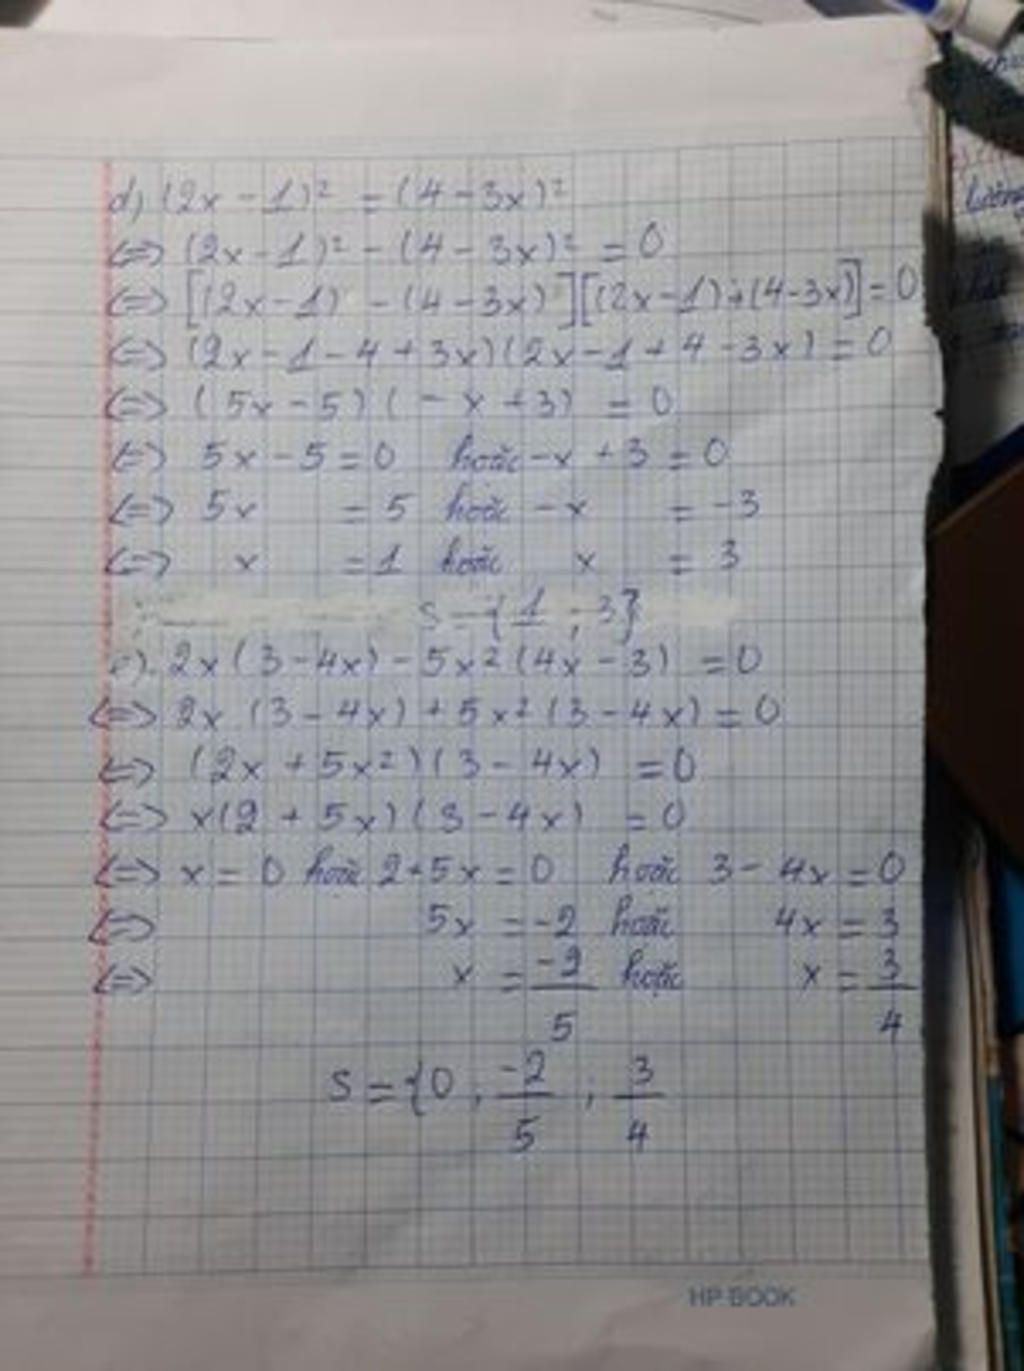 d) (2x - 1)² = (4 - 3x)²
<=> (2x - 1)² - (4 - 3x)² = 0
<=> [(2x - 1) - (4 - 3x)][(2x - 1) + (4 - 3x)] = 0
<=> (2x - 1 - 4 + 3x)(2x - 1 + 4 - 3x) = 0
<=> (5x - 5)(- x + 3) = 0
<=> 5x - 5 = 0 hoặc -x + 3 = 0
<=> 5x = 5 hoặc -x = -3
<=> x = 1 hoặc x = 3
S = {1 ; 3}
e). 2x(3 - 4x) - 5x²(4x - 3) = 0
<=> 2x (3 - 4x) + 5x²(3 - 4x) = 0
<=> (2x + 5x²)(3 - 4x) = 0
<=> x(2 + 5x)(3 - 4x) = 0
<=> x = 0 hoặc 2 + 5x = 0 hoặc 3 - 4x = 0
<=> 5x = -2 hoặc 4x = 3
<=> x = -2/5 hoặc x = 3/4
S = {0 ; -2/5 ; 3/4
HP BOOK